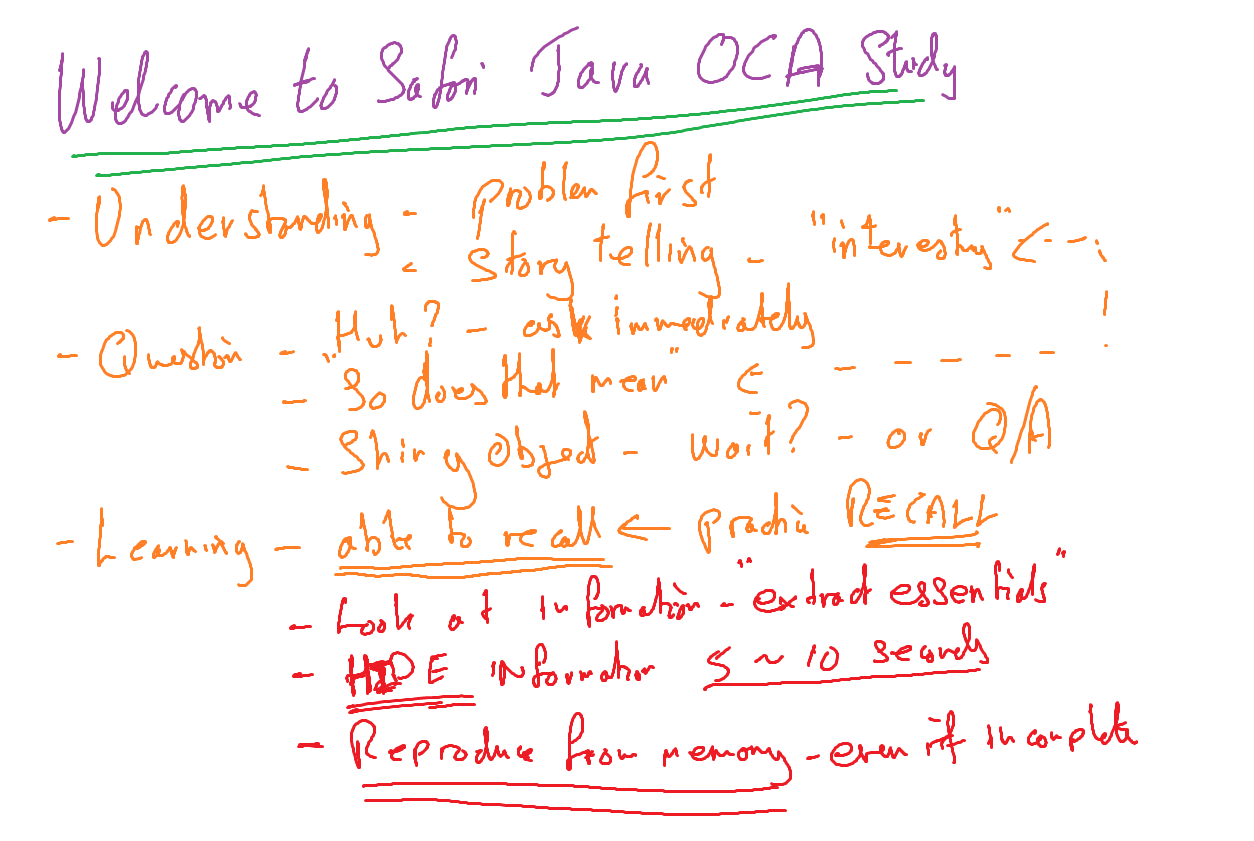 Welcome to Safari Java OCA Study
- Understanding - problem first
- Story telling - "interesting" <--
- Question - "Huh? - ask immediately
- So does that mean" <- - - - -
- Shiny Object - wait? - or Q/A
- Learning - able to recall ← practice RECALL
- Look at information - "extract essentials"
- HIDE information 5 ~ 10 seconds
- Reproduce from memory - even if incomplete